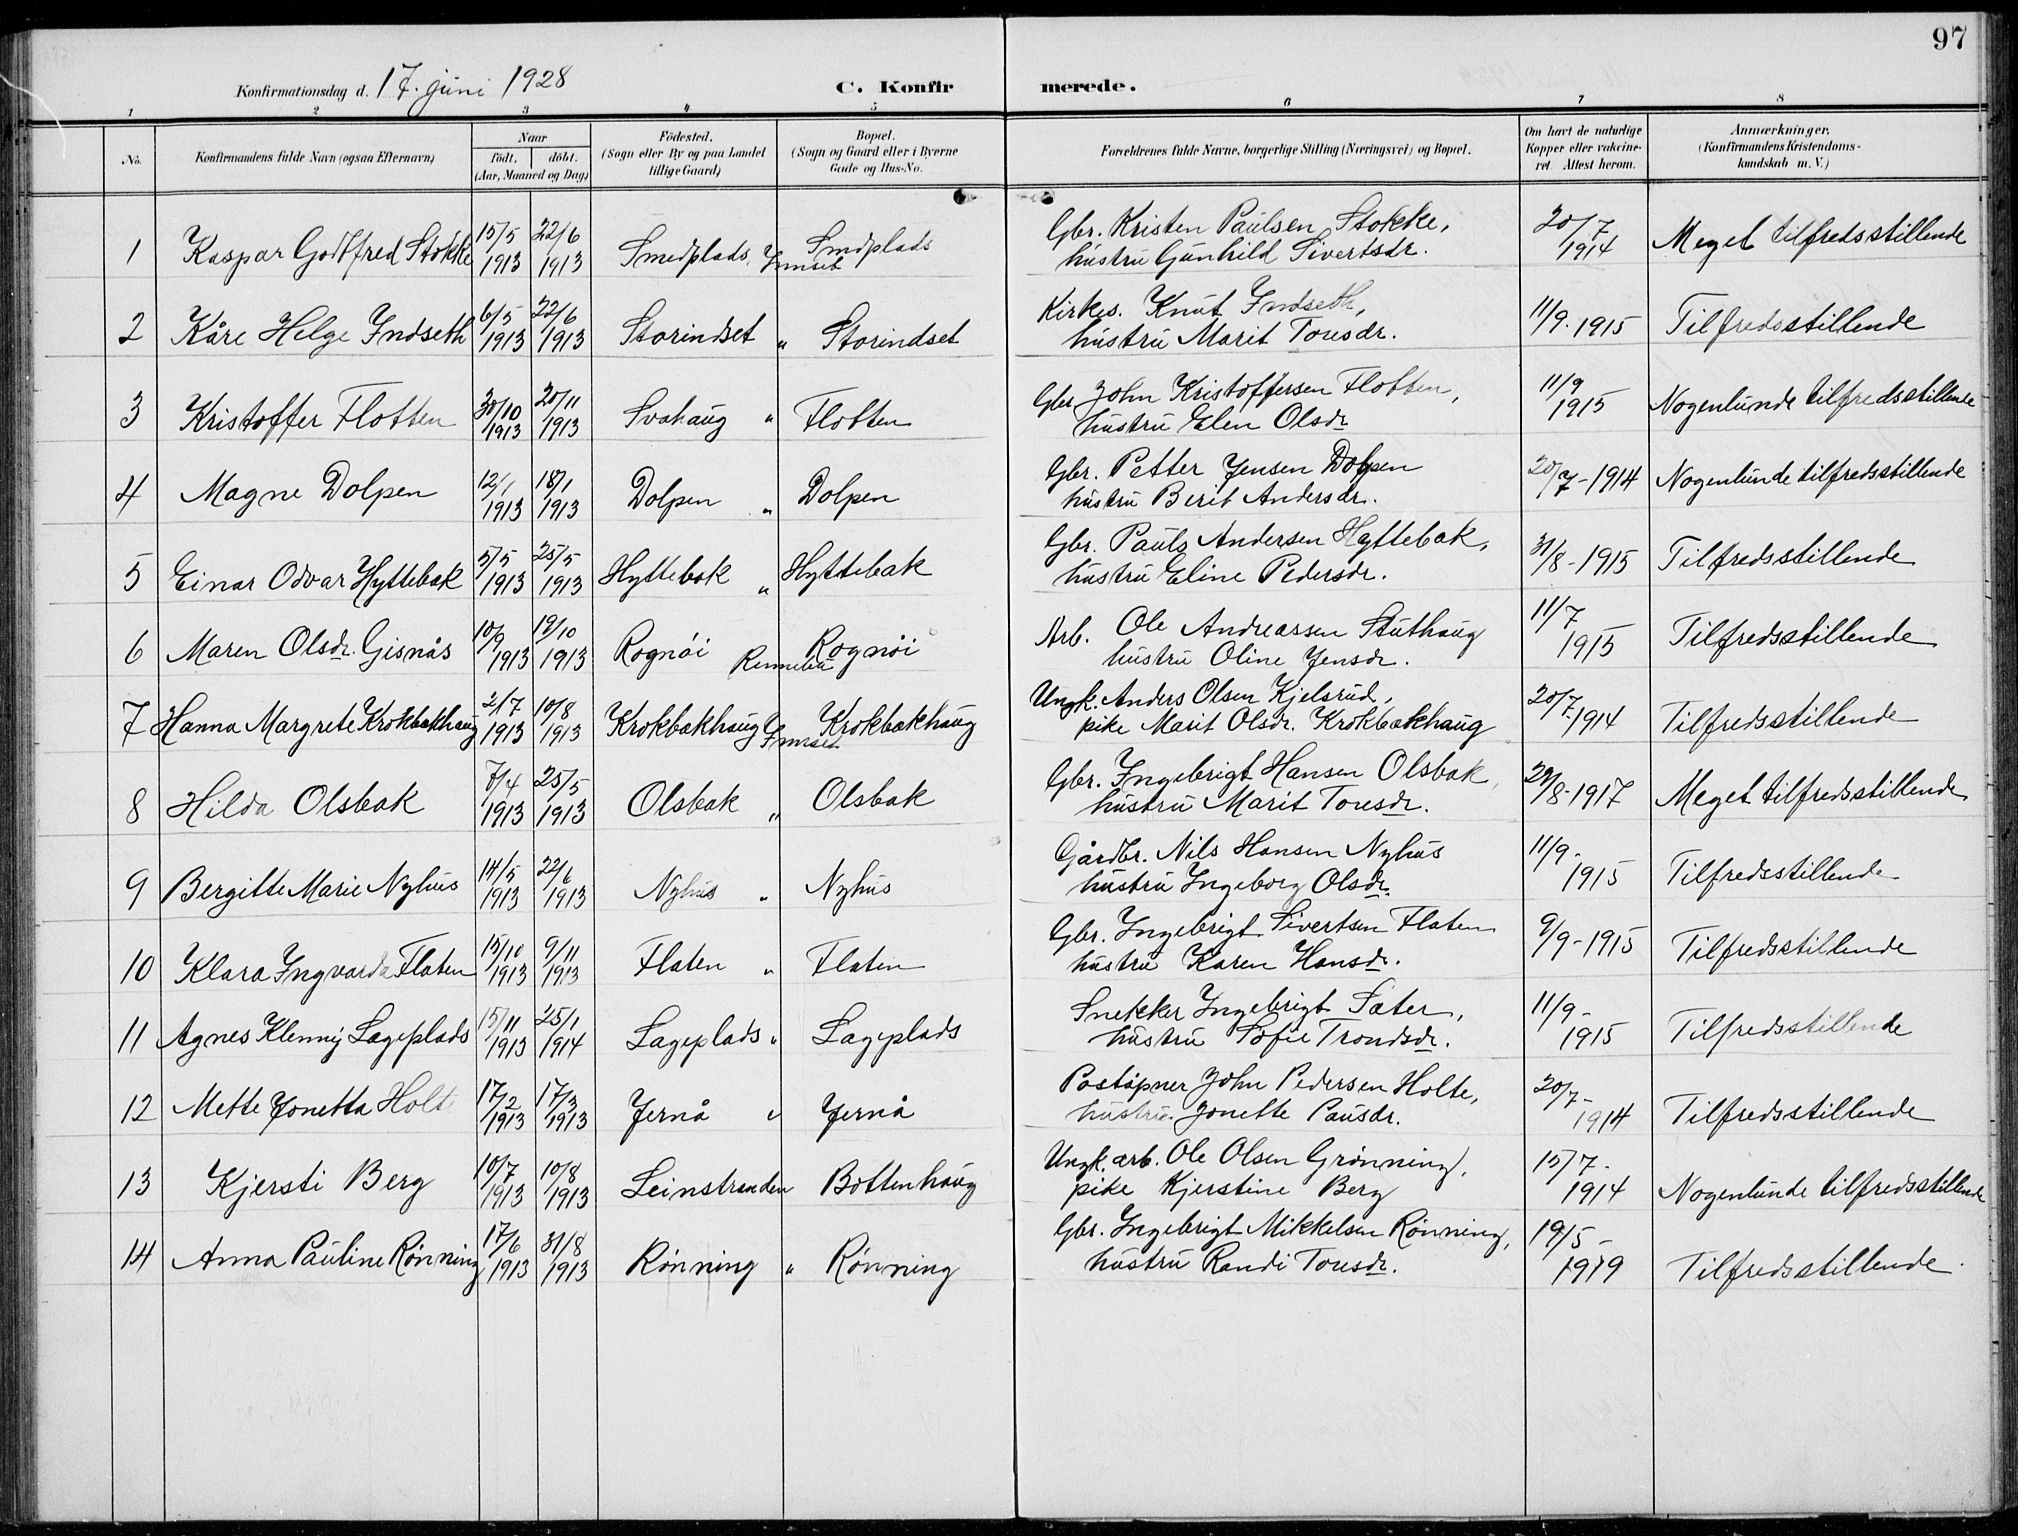 97
Konfirmationsdag d. 17. juni 1928 C. Konfirmerede.
1 2 3 4 5 6 7 8
No. Konfirmandens fulde Navn (ogsaa Efternavn) Naar födt. döbt. (Aar, Maaned og Dag) Födested. (Sogn eller By og paa Landet tillige Gaard) Bopæl. (Sogn og Gaard eller i Byerne Gade og Hus-No. Forældrenes fulde Navne, borgerlige Stilling (Næringsvei) og Bopæl. Om havt de naturlige Kopper eller vakcineret. Attest herom. Anmærkninger. (Konfirmandens Kristendomskundskab m. V.)
1 Kaspar Godtfred Stokke 15/5 1913 22/6 1913 Smedplads, Innset Smdplads Gbr. Kristen Paulsen Stokke, hustru Gunhild Sivertsdr. 20/7 1914 Meget tilfredsstillende
2 Kåre Helge Indseth 6/5 1913 22/6 1913 Storindset " Storindset Kirkes. Knut Indseth, hustru Marit Toresdr. 11/9. 1915 Tilfredsstillende
3 Kristoffer Flotten 30/10 1913 20/11 1913 Svahaug " Flotten Gbr John Kristoffersen Flotten, hustru Elen Olsdr 11/9 1915 Nogenlunde tilfredsstillende
4 Magne Dolpen 12/1 1913 18/1 1913 Dolpen " Dolpen Gbr. Petter Jensen Dolpen hustru Berit Andersdr. 20/7-1914 Nogenlunde tilfredsstillende
5 Einar Odvar Hyttebak 5/5 1913 25/5 1913 Hyttebak " Hyttebak Gbr. Paul Andersen Hyttebak, hustru Eline Pedersdr. 31/8-1915 Tilfredsstillende
6 Maren Olsdr. Gisnås 10/9 1913 19/10 1913 Rognøi Rennebu Rognøi Arb. Ole Andreassen Stuthaug hustru Oline Jensdr. 11/7 1915 Tilfredsstillende
7 Hanna Margrete Krokbakhaug 2/7 1913 10/8 1913 Krokbakhaug Innset Krokbakhaug Ungk. Anders Olsen Kjelsrud, pike Marit Olsdr. Krokbakhaug 20/7. 1914 Tilfredsstillende
8 Hilda Olsbak 7/4 1913 25/5 1913 Olsbak " Olsbak Gbr. Ingebrigt Hansen Olsbak, hustru Marit Toresdr. 29/8-1917 Meget tilfredsstillende
9 Bergitte Marie Nyhus 14/5 1913 22/6 1913 Nyhus " Nyhus Gårdbr. Nils Hansen Nyhus hustru Ingeborg Olsdr. 11/9- 1915 Tilfredsstillende
10 Klara Ingvarda Flaten 15/10 1913 9/11 1913 Flaten " Flaten Gbr. Ingebrigt Sivertsen Flaten hustru Karen Hansdr. 9/9-1915 Tilfredsstillende
11 Agnes Klenny Lageplads 15/11 1913 25/1 1914 Lageplads " Lageplads Snekker Ingebrigt Sæter, hustru Sofie Trondsdr. 11/9- 1915 Tilfredsstillende
12 Mette Jonetta Holte 17/2 1913 17/3 1913 Jernå " Jernå Poståpner John Pedersen Holte, hustru Jonette Pausdr. 20/7- 1914 Tilfredsstillende
13 Kjersti Berg 10/7 1913 10/8 1913 Leinstranden Bottenhaug Ungk. arb. Ole Olsen Grønning, pike Kjerstine Berg 15/7- 1914 Nogenlunde tilfredsstillende
14 Anna Pauline Rønning 17/6 1913 31/8 1913 Rønning " Rønning Gbr. Ingebrigt Mikkelsen Rønning, hustru Randi Toresdr. 19/5- 1919 Tilfredsstillende.